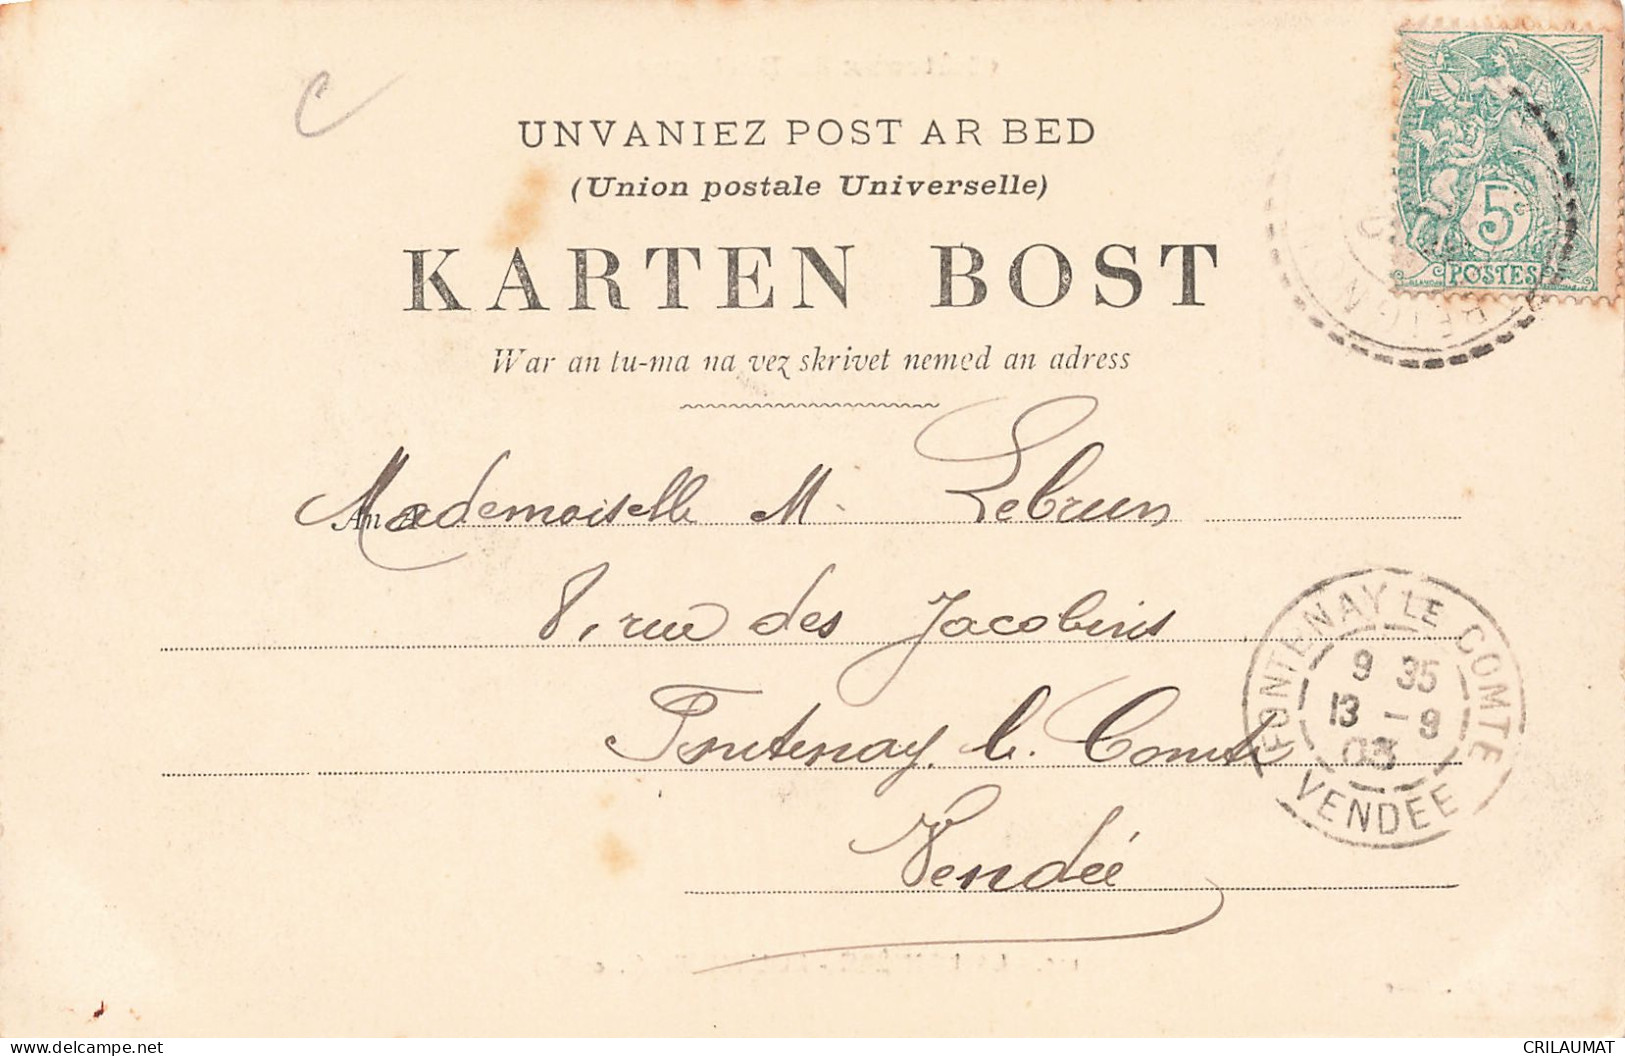 C
UNVANIEZ POST AR BED
(Union postale Universelle)
KARTEN BOST
War an tu-ma na vez skrivet nemed an adress
5c
POSTES
An A
Mademoiselle M. Lebrun
8, rue des Jacobins
Fontenay le Comte
Vendée
FONTENAY LE COMTE
9 35
13 - 9
03
VENDÉE
delcampe.net
CRILAUMAT